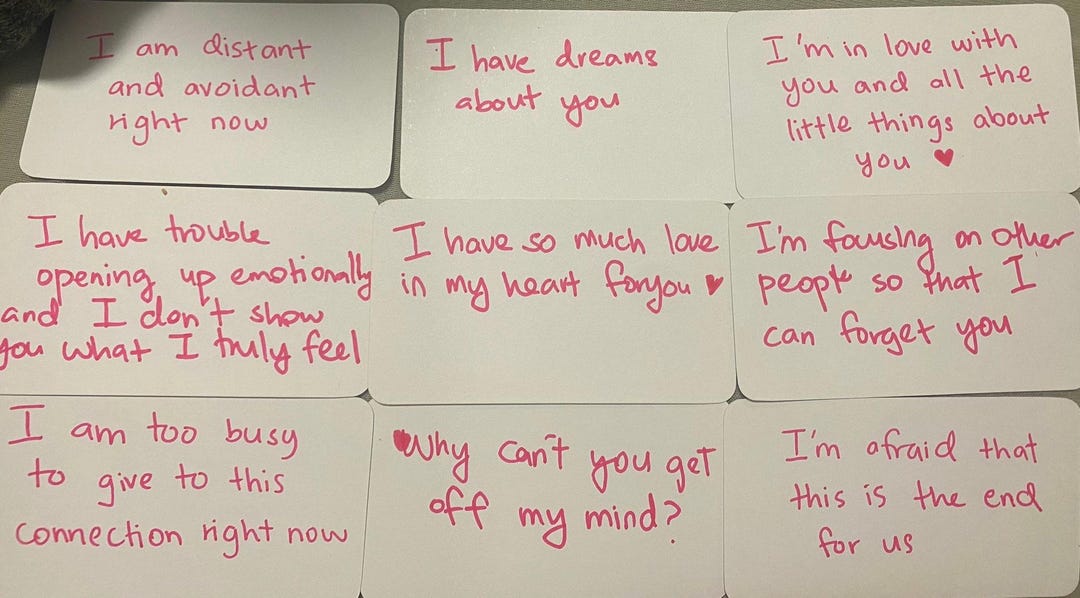 I am distant
and avoidant
right now
I have dreams
about you
I'm in love with
you and all the
little things about
you ♥
I have trouble
opening up emotionally
and I don't show
you what I truly feel
I have so much love
in my heart for you ♥
I'm focusing on other
people so that I
can forget you
I am too busy
to give to this
connection right now
Why can't you get
off my mind?
I'm afraid that
this is the end
for us